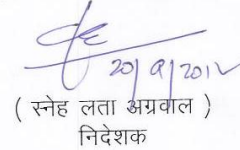 20/9/2012
( स्नेह लता अग्रवाल )
निदेशक